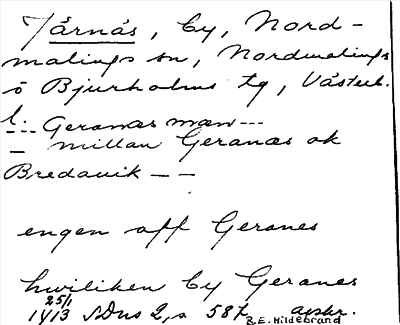 Järnäs, by, Nord-
malings sn, Nordmalings
o Bjurholms tg, Västerb.
l.
--- Geranæs mæn ---
— millan Geranæs ok
Bredauik — —
engen aff Geranes
hwiliken by Geranes
25/1
1413 SDns 2, s 587. avskr.
B.E. Hildebrand